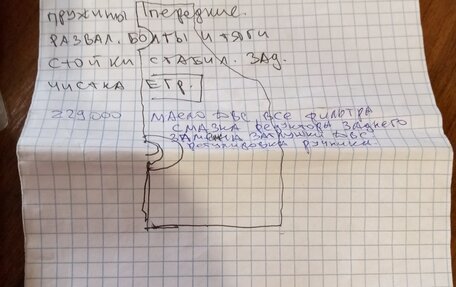 ПРУЖИНЫ ПЕРЕДНИЕ.
РАЗВАЛ. БОЛТЫ И ТЯГИ
СТОЙКИ СТАБИЛ. ЗАД.
ЧИСТКА ЕГР.
229000 МАСЛО ДВС ВСЕ ФИЛЬТРА
СМАЗКА РЕДУКТОРА ЗАДНЕГО
ЗАМЕНА ЗАГЛУШКИ ДВС
РЕГУЛИРОВКА РУЧНИКА.